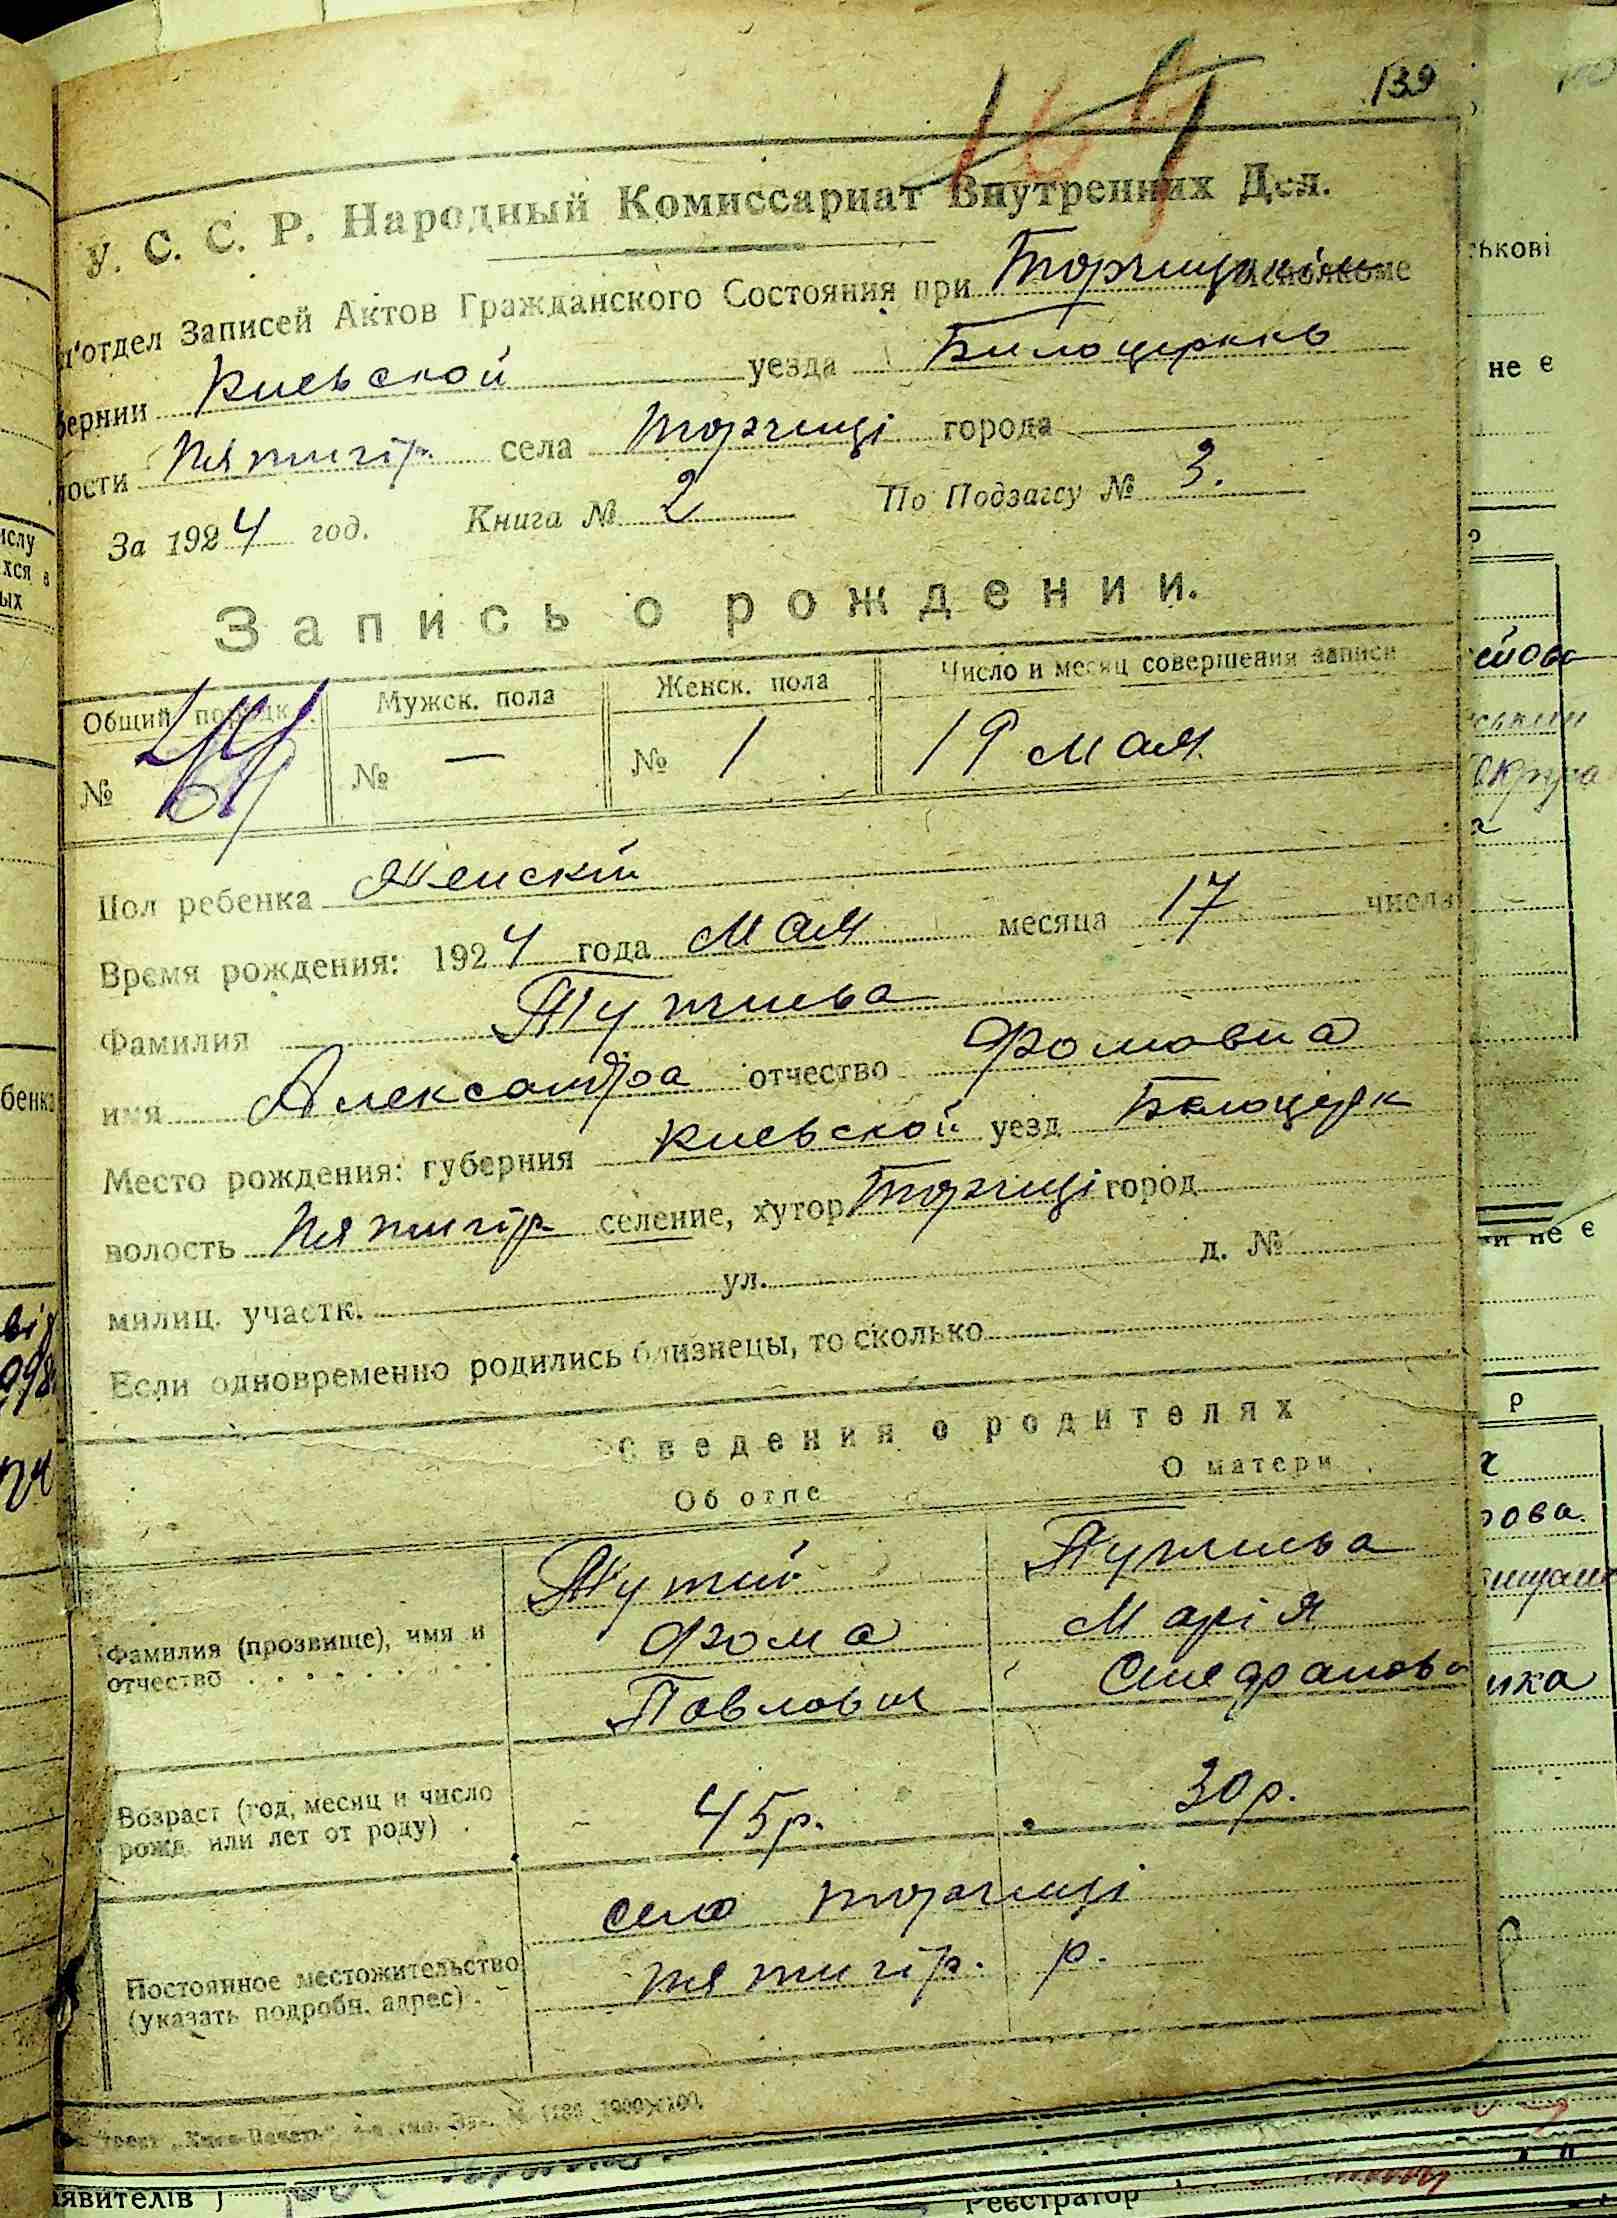 139
164
У. С. С. Р. Народный Комиссариат Внутренних Дел.
п'отдел Записей Актов Гражданского Состояния при Торчицькім Исполкоме
бернии Киевской уезда Билоцеркв
лости Пятигір. села Торчиці города
За 1924 год. Книга № 2 По Подзагсу № 3.
Запись о рождении.
Общий порядк. Мужск. пола Женск. пола Число и месяц совершения записи
№ 44 № — № 1 19 мая
Пол ребенка Женскій
Время рождения: 1924 года мая месяца 17 числа
Фамилия
имя Александра отчество Фомовна
Место рождения: губерния Киевской уезд Белоцерк
волость Пятигір селение, хутор Торчиці город
милиц. участк. ул. д. №
Если одновременно родились близнецы, то сколько
Сведения о родителях
Об отце О матери
Фамилия (прозвище), имя и отчество
Фома Марія
Павлович Стефанова
Возраст (год, месяц и число рожд. или лет от роду) 45р. 30р.
Постоянное местожительство (указать подробн. адрес)
село Торчиці
Пятигір. р.
явителів
Реєстратор